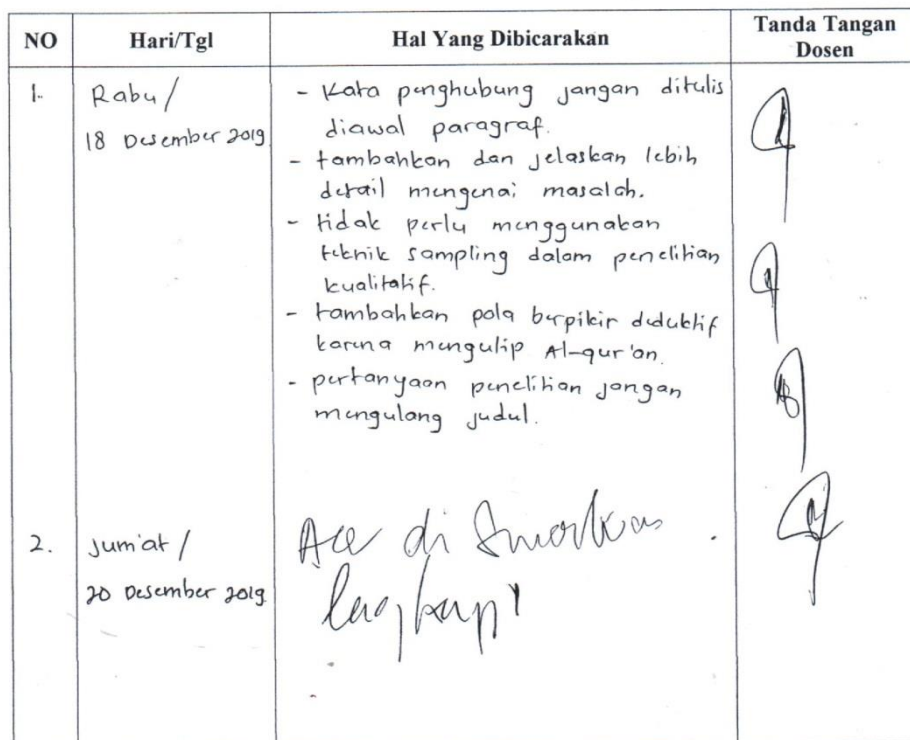 NO Hari/Tgl Hal Yang Dibicarakan Tanda Tangan Dosen
1. Rabu / 18 Desember 2019
- Kata penghubung jangan ditulis
diawal paragraf.
- tambahkan dan jelaskan lebih
detail mengenai masalah.
- tidak perlu menggunakan
teknik sampling dalam penelitian
kualitatif.
- tambahkan pola berpikir deduktif
karena mengutip Al-qur'an.
- pertanyaan penelitian jangan
mengulang judul.
2. Jumiat / 20 Desember 2019
Acc di